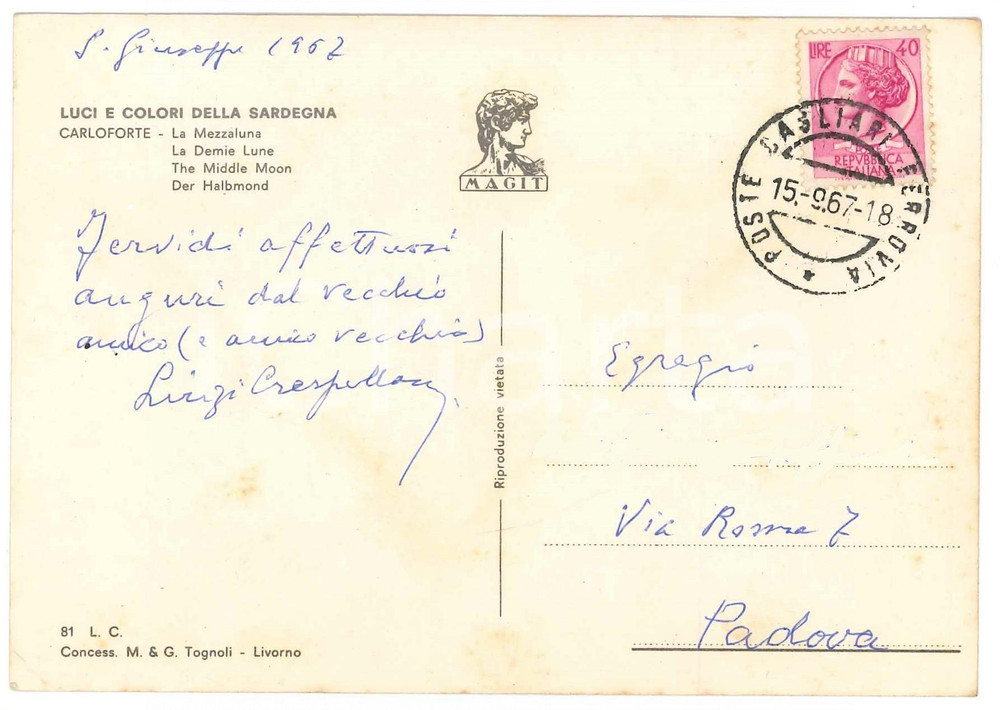 S. Giuseppe 1967
LUCI E COLORI DELLA SARDEGNA
CARLOFORTE - La Mezzaluna
La Demie Lune
The Middle Moon
Der Halbmond
MAGIT
LIRE 40
REPVBBLICA
ITALIANA
POSTE CAGLIARI FERROVIA
15.-9.67-18
Fervidi affettuosi
auguri dal vecchio
amico (e amico vecchio)
Luigi
Riproduzione vietata
Egregio
Via Roma 7
Padova
81 L. C.
Concess. M. & G. Tognoli - Livorno